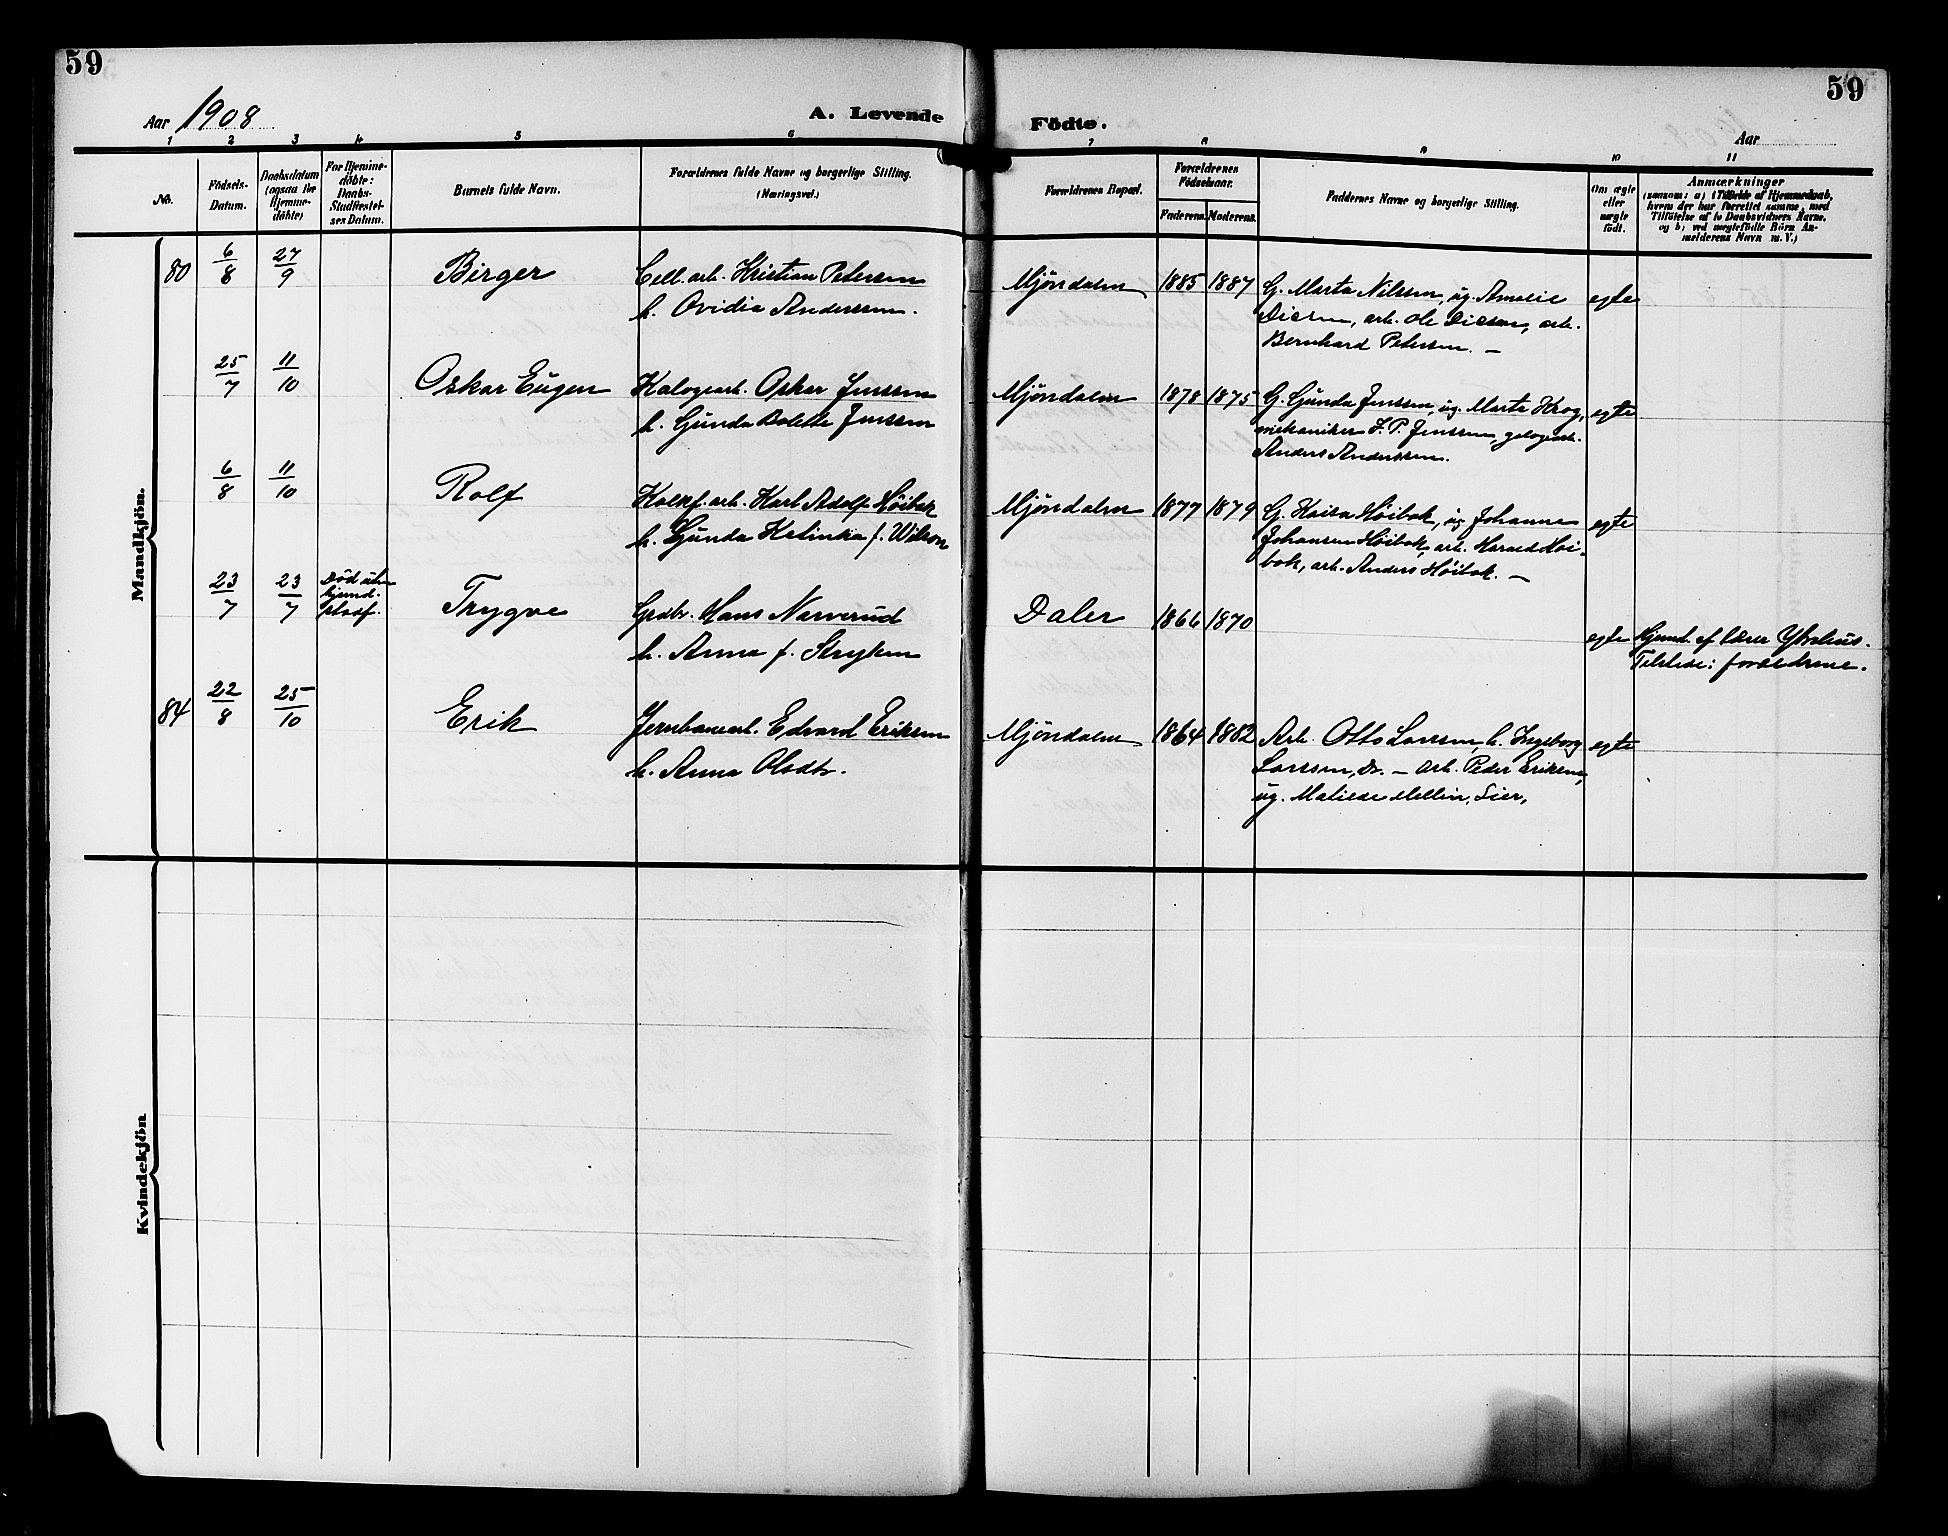 59
59
Aar 1908
A. Levende
Födte.
Aar
1 2 3 4 5 6 7 8 9 10 11
No.
Födsels-
Datum.
Daabsdatum
(ogsaa for
Hjemme-
döbte)
For Hjemme-
döbte:
Daabs-
Stadfæstel-
ses Datum.
Barnets fulde Navn.
Forældrenes fulde Navne og borgerlige Stilling.
(Næringsvei.)
Forældrenes Bopæl.
Forældrenes
Födselsaar.
Faderens. Moderens.
Faddernes Navne og borgerlige Stilling.
Om ægte
eller
uægte
födt.
Anmærkninger
(saasom: a) i Tilfælde af Hjemmedaab,
hvem der har forrettet samme, med
Tilföielse af to Daabsvidners Navne,
og b) ved uægtefödte Börn An-
melderens Navn m. V.)
Mandkjön.
80 6/8 27/9 Birger
Cell.arb. Kristian Petersen
h. Ovidia Anderssen.
Mjöndalen 1885 1887
G. Marta Nilssen, ug. Amalie
arb. Ole arb.
Bernhard Petersen. –
egte
25/7 11/10 Oskar Eugen
Oskar Jenssen
h. Gunda Bolette Jenssen
Mjöndalen 1878 1875
G. Gunda Jenssen, ug. Marte Krog,
mekaniker J. P. Jenssen,
Anders Anderssen.
egte
6/8 11/10 Rolf
arb. Karl Adolf Höibak
h. Gunda Katinka f. Wilson
Mjöndalen 1877 1879
G. Kaisa Höibak, ug. Johanne
Johansen Höibak, arb. Harald Höi-
bak, arb. Anders Höibak. –
egte
23/7 23/7 Död uden
hjemd.
stadf.
Trygve
Grdbr. Hans Narverud
h. Anna f. Stryken
Daler 1866 1870
egte
Hjemd. af lærer
Tilstede: forældrene.
84 22/8 25/10 Erik
Jernbanearb. Edvard Eriksen
h. Anna Olsdtr.
Mjöndalen 1864 1882
Arb. Otto Larssen, h. Ingeborg
Larssen, Dr. – arb. Peder Eriksen,
ug. Matilde Mellin, Lier,
egte
Kvindekjön